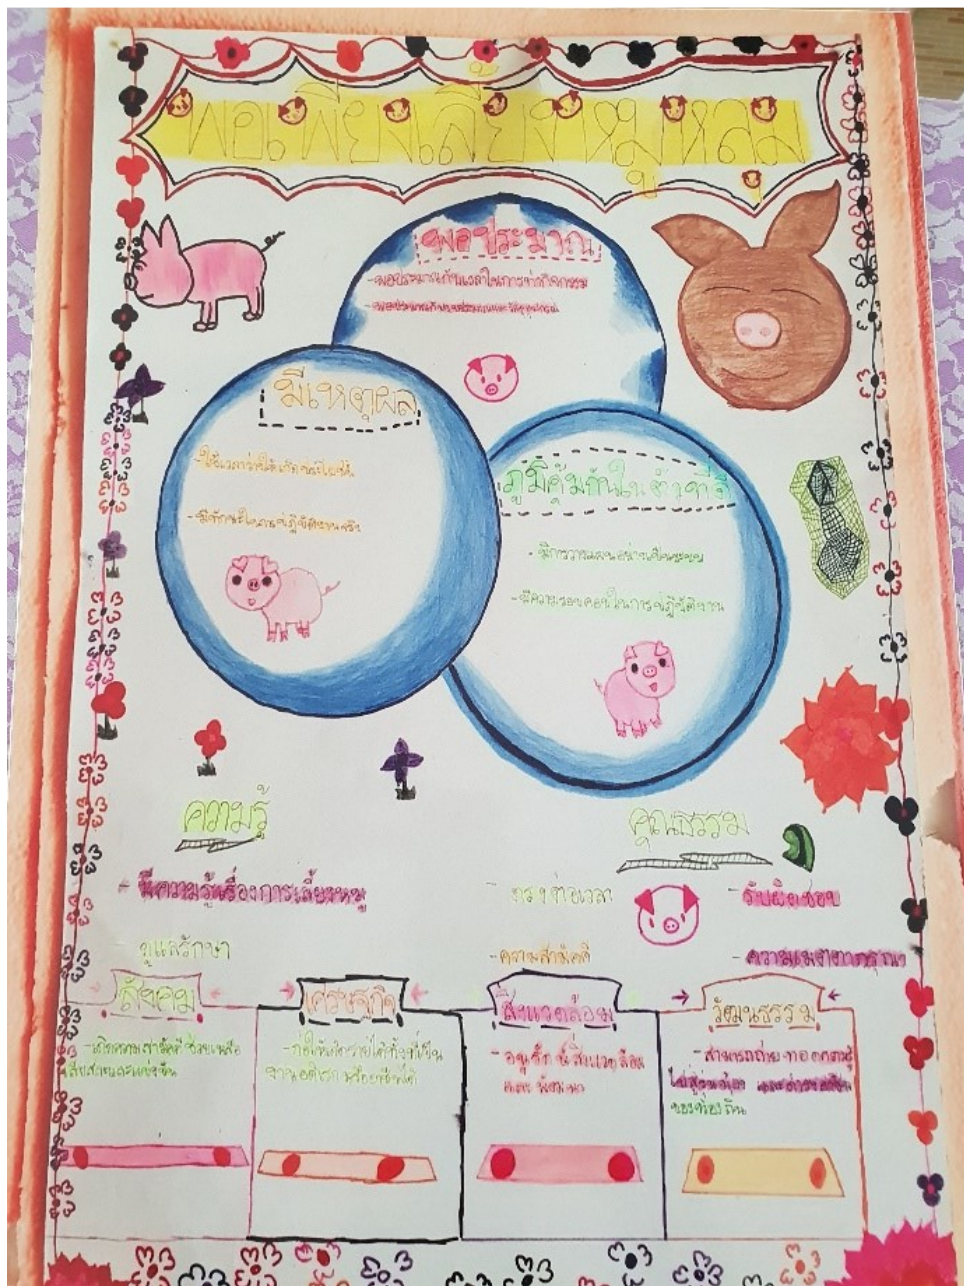 พอเพียงเลี้ยงหมูหลุม
พอประมาณ
-พอประมาณกับเวลาในการทำกิจกรรม
มีเหตุผล
-ใช้เวลาว่างให้เกิดประโยชน์
-มีทักษะในการปฏิบัติงานจริง
ภูมิคุ้มกันในตัวที่ดี
- มีการวางแผนอย่างเป็นระบบ
-มีความรอบคอบในการปฏิบัติงาน
ความรู้
- มีความรู้เรื่องการเลี้ยงหมู
ดูแลรักษา
คุณธรรม
- ตรงต่อเวลา
- รับผิดชอบ
-ความสามัคคี
- ความเมตตากรุณา
สังคม
-เกิดความสามัคคี ช่วยเหลือ
เศรษฐกิจ
- ก่อให้เกิดรายได้ทั้งที่เป็น
งานอดิเรก หรืออาชีพได้
สิ่งแวดล้อม
- อนุรักษ์สิ่งแวดล้อม
และพัฒนา
วัฒนธรรม
- สามารถถ่ายทอดความรู้
ไปสู่รุ่นน้อง
ของท้องถิ่น